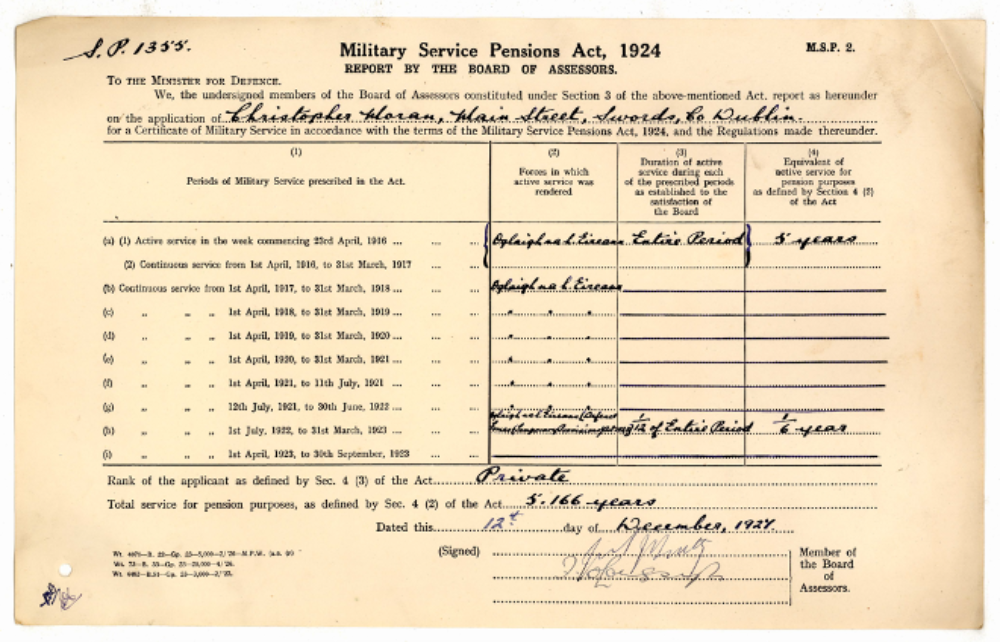 S.P. 1355.
Military Service Pensions Act, 1924
M.S.P. 2.
REPORT BY THE BOARD OF ASSESSORS.
TO THE MINISTER FOR DEFENCE.
We, the undersigned members of the Board of Assessors constituted under Section 3 of the above-mentioned Act, report as hereunder
on the application of Christopher Moran, Main Street, Swords, Co Dublin.
for a Certificate of Military Service in accordance with the terms of the Military Service Pensions Act, 1924, and the Regulations made thereunder.
(1)
Periods of Military Service prescribed in the Act.
(2)
Forces in which
active service was
rendered
(3)
Duration of active
service during each
of the prescribed periods
as established to the
satisfaction of
the Board
(4)
Equivalent of
active service for
pension purposes
as defined by Section 4 (2)
of the Act
(a) (1) Active service in the week commencing 23rd April, 1916 ... ... ... Oglaigh na h-Eireann Entire Period 5 years
(2) Continuous service from 1st April, 1916, to 31st March, 1917 ... ...
(b) Continuous service from 1st April, 1917, to 31st March, 1918 ... ... ... Oglaigh na h-Eireann
(c) „ „ „ 1st April, 1918, to 31st March, 1919 ... ... ... " " "
(d) „ „ „ 1st April, 1919, to 31st March, 1920 ... ... ... " " "
(e) „ „ „ 1st April, 1920, to 31st March, 1921 ... ... ... " " "
(f) „ „ „ 1st April, 1921, to 11th July, 1921 ... ... ... " " "
(g) „ „ „ 12th July, 1921, to 30th June, 1922 ... ... ...
Oglaigh na h-Eireann (Defence
(h) „ „ „ 1st July, 1922, to 31st March, 1923 ... ... ... Forces (Temporary Provisions) Act of Entire Period 1/6 year
(i) „ „ „ 1st April, 1923, to 30th September, 1923 ... ...
Rank of the applicant as defined by Sec. 4 (3) of the Act Private
Total service for pension purposes, as defined by Sec. 4 (2) of the Act 5.166 years
Dated this 12th day of December, 1927.
(Signed)
Member of
the Board
of
Assessors.